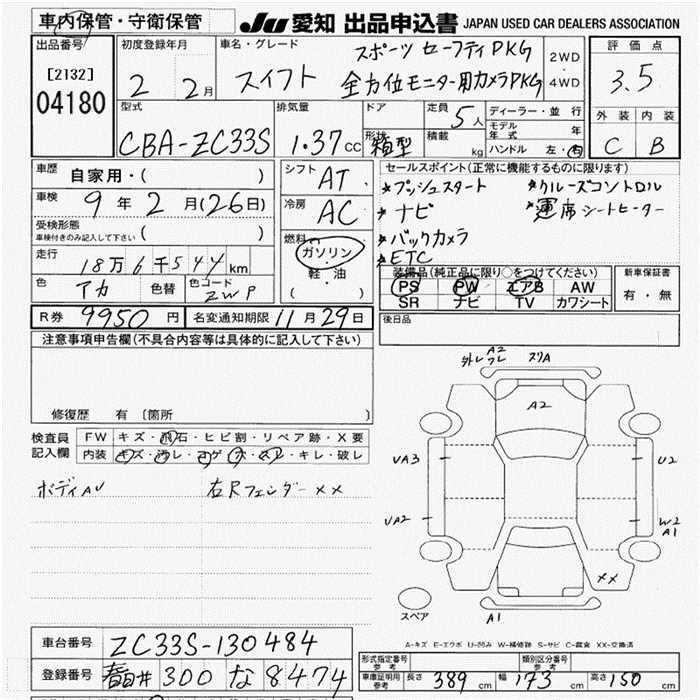 車内保管・守衛保管
JU 愛知 出品申込書 JAPAN USED CAR DEALERS ASSOCIATION
出品番号
[2132]
04180
初度登録年月
2 2月
車名・グレード
スイフト
スポーツ セーフティPKG
全方位モニター用カメラPKG
2WD
・
4WD
評価点
3.5
外装 内装
C B
型式
CBA-ZC33S
排気量
1.37cc
ドア
形状
箱型
定員
5人
積載
kg
ディーラー・並行
モデル年式 年
ハンドル 左・右
車歴
自家用・( )
車検
9年2月(26日)
受検形態
車検付きのみ記入して下さい ( )
走行
18万6千544km
色
アカ
色替
色コード
ZWP
シフト
AT
冷房
AC
燃料
ガソリン
軽・油
( )
セールスポイント(正常に機能するものに限ります)
*プッシュスタート *クルーズコントロル
*ナビ *運席シートヒーター
*バックカメラ
*ETC
装備品(純正品に限り○をつけてください)
PS PW エアB AW
SR ナビ TV カワシート
新車保証書
有・無
R券 9950円
名変通知期限 11月29日
後日品
注意事項申告欄(不具合内容等は具体的に記入して下さい)
修復歴 有〔箇所 〕
検査員
記入欄
FW キズ・飛石・ヒビ割・リペア跡・X要
内装 キズ・汚レ・コゲ・穴・スレ・キレ・破レ
ボディAU 右Rフェンダー××
外レ A2 フレ スリA
A2
UA3
U2
UA2
W2
A1
××
スペア
A1
A-キズ E-エクボ U-凹み W-補修跡 S-サビ C-腐食 XX-交換済
車台番号 ZC33S-130484
登録番号 春日井 300 な 8474
形式指定番号
参考
類別区分番号
参考
車庫証明用
参考
長さ 389cm 幅 173cm 高さ 150cm